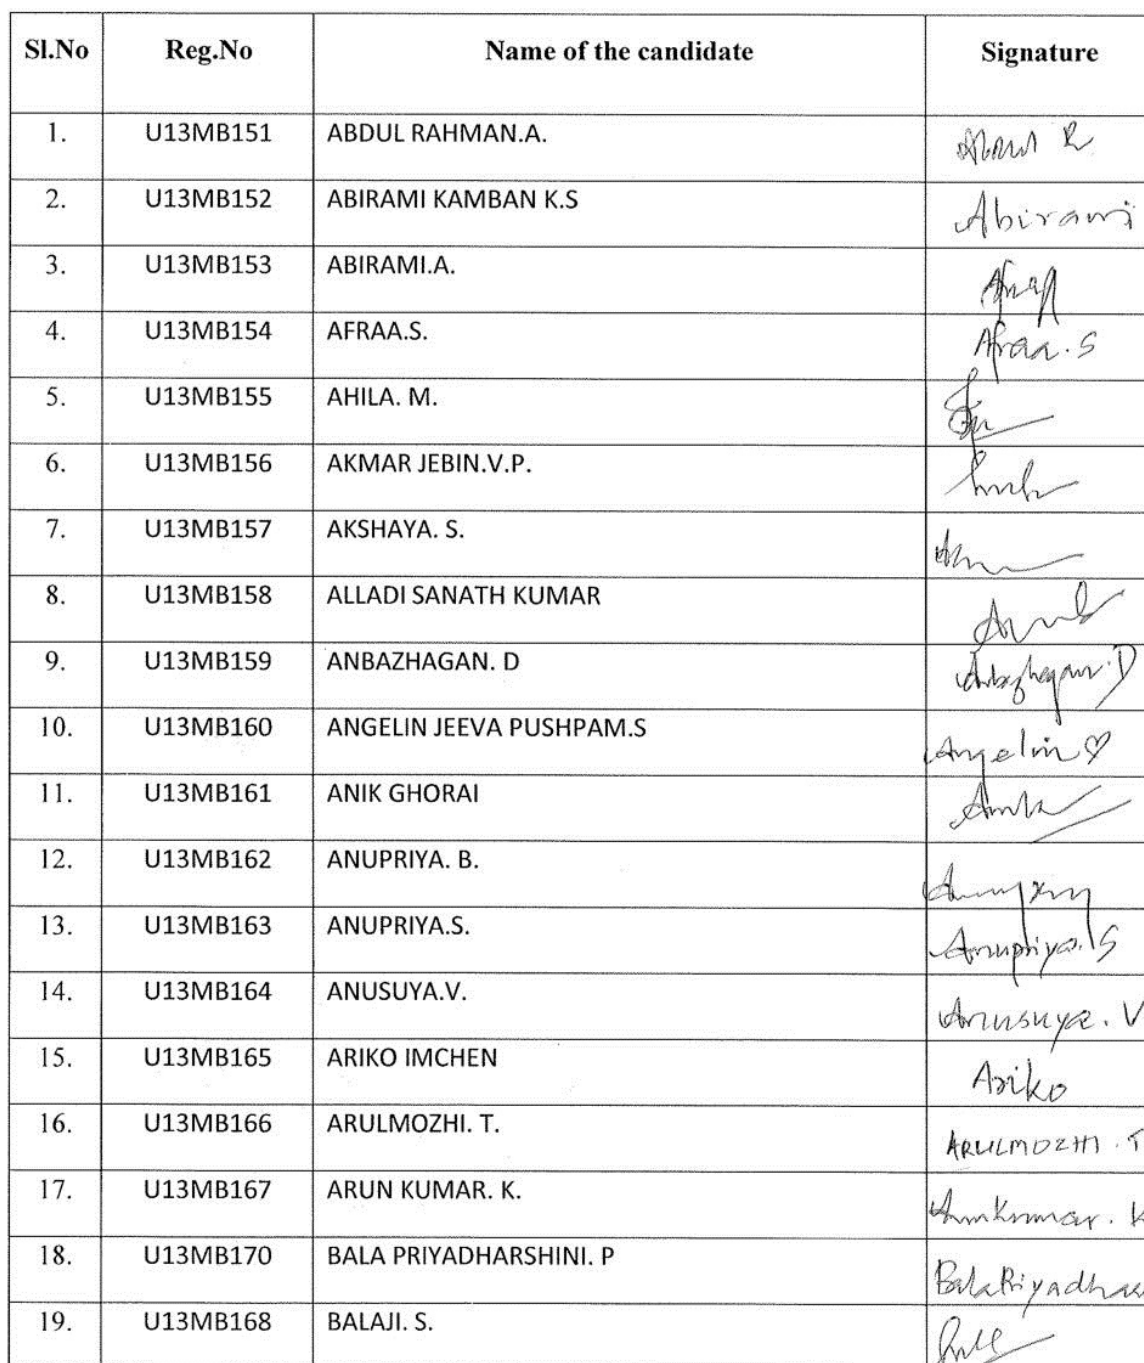 Sl.No Reg.No Name of the candidate Signature
1. U13MB151 ABDUL RAHMAN.A.
2. U13MB152 ABIRAMI KAMBAN K.S Abirami
3. U13MB153 ABIRAMI.A.
4. U13MB154 AFRAA.S. Afraa.S
5. U13MB155 AHILA. M.
6. U13MB156 AKMAR JEBIN.V.P.
7. U13MB157 AKSHAYA. S.
8. U13MB158 ALLADI SANATH KUMAR
9. U13MB159 ANBAZHAGAN. D
10. U13MB160 ANGELIN JEEVA PUSHPAM.S Angelin
11. U13MB161 ANIK GHORAI
12. U13MB162 ANUPRIYA. B.
13. U13MB163 ANUPRIYA.S. Anupriya.S
14. U13MB164 ANUSUYA.V. Anusuya. V
15. U13MB165 ARIKO IMCHEN Ariko
16. U13MB166 ARULMOZHI. T. ARULMOZHI . T
17. U13MB167 ARUN KUMAR. K.
18. U13MB170 BALA PRIYADHARSHINI. P
19. U13MB168 BALAJI. S.